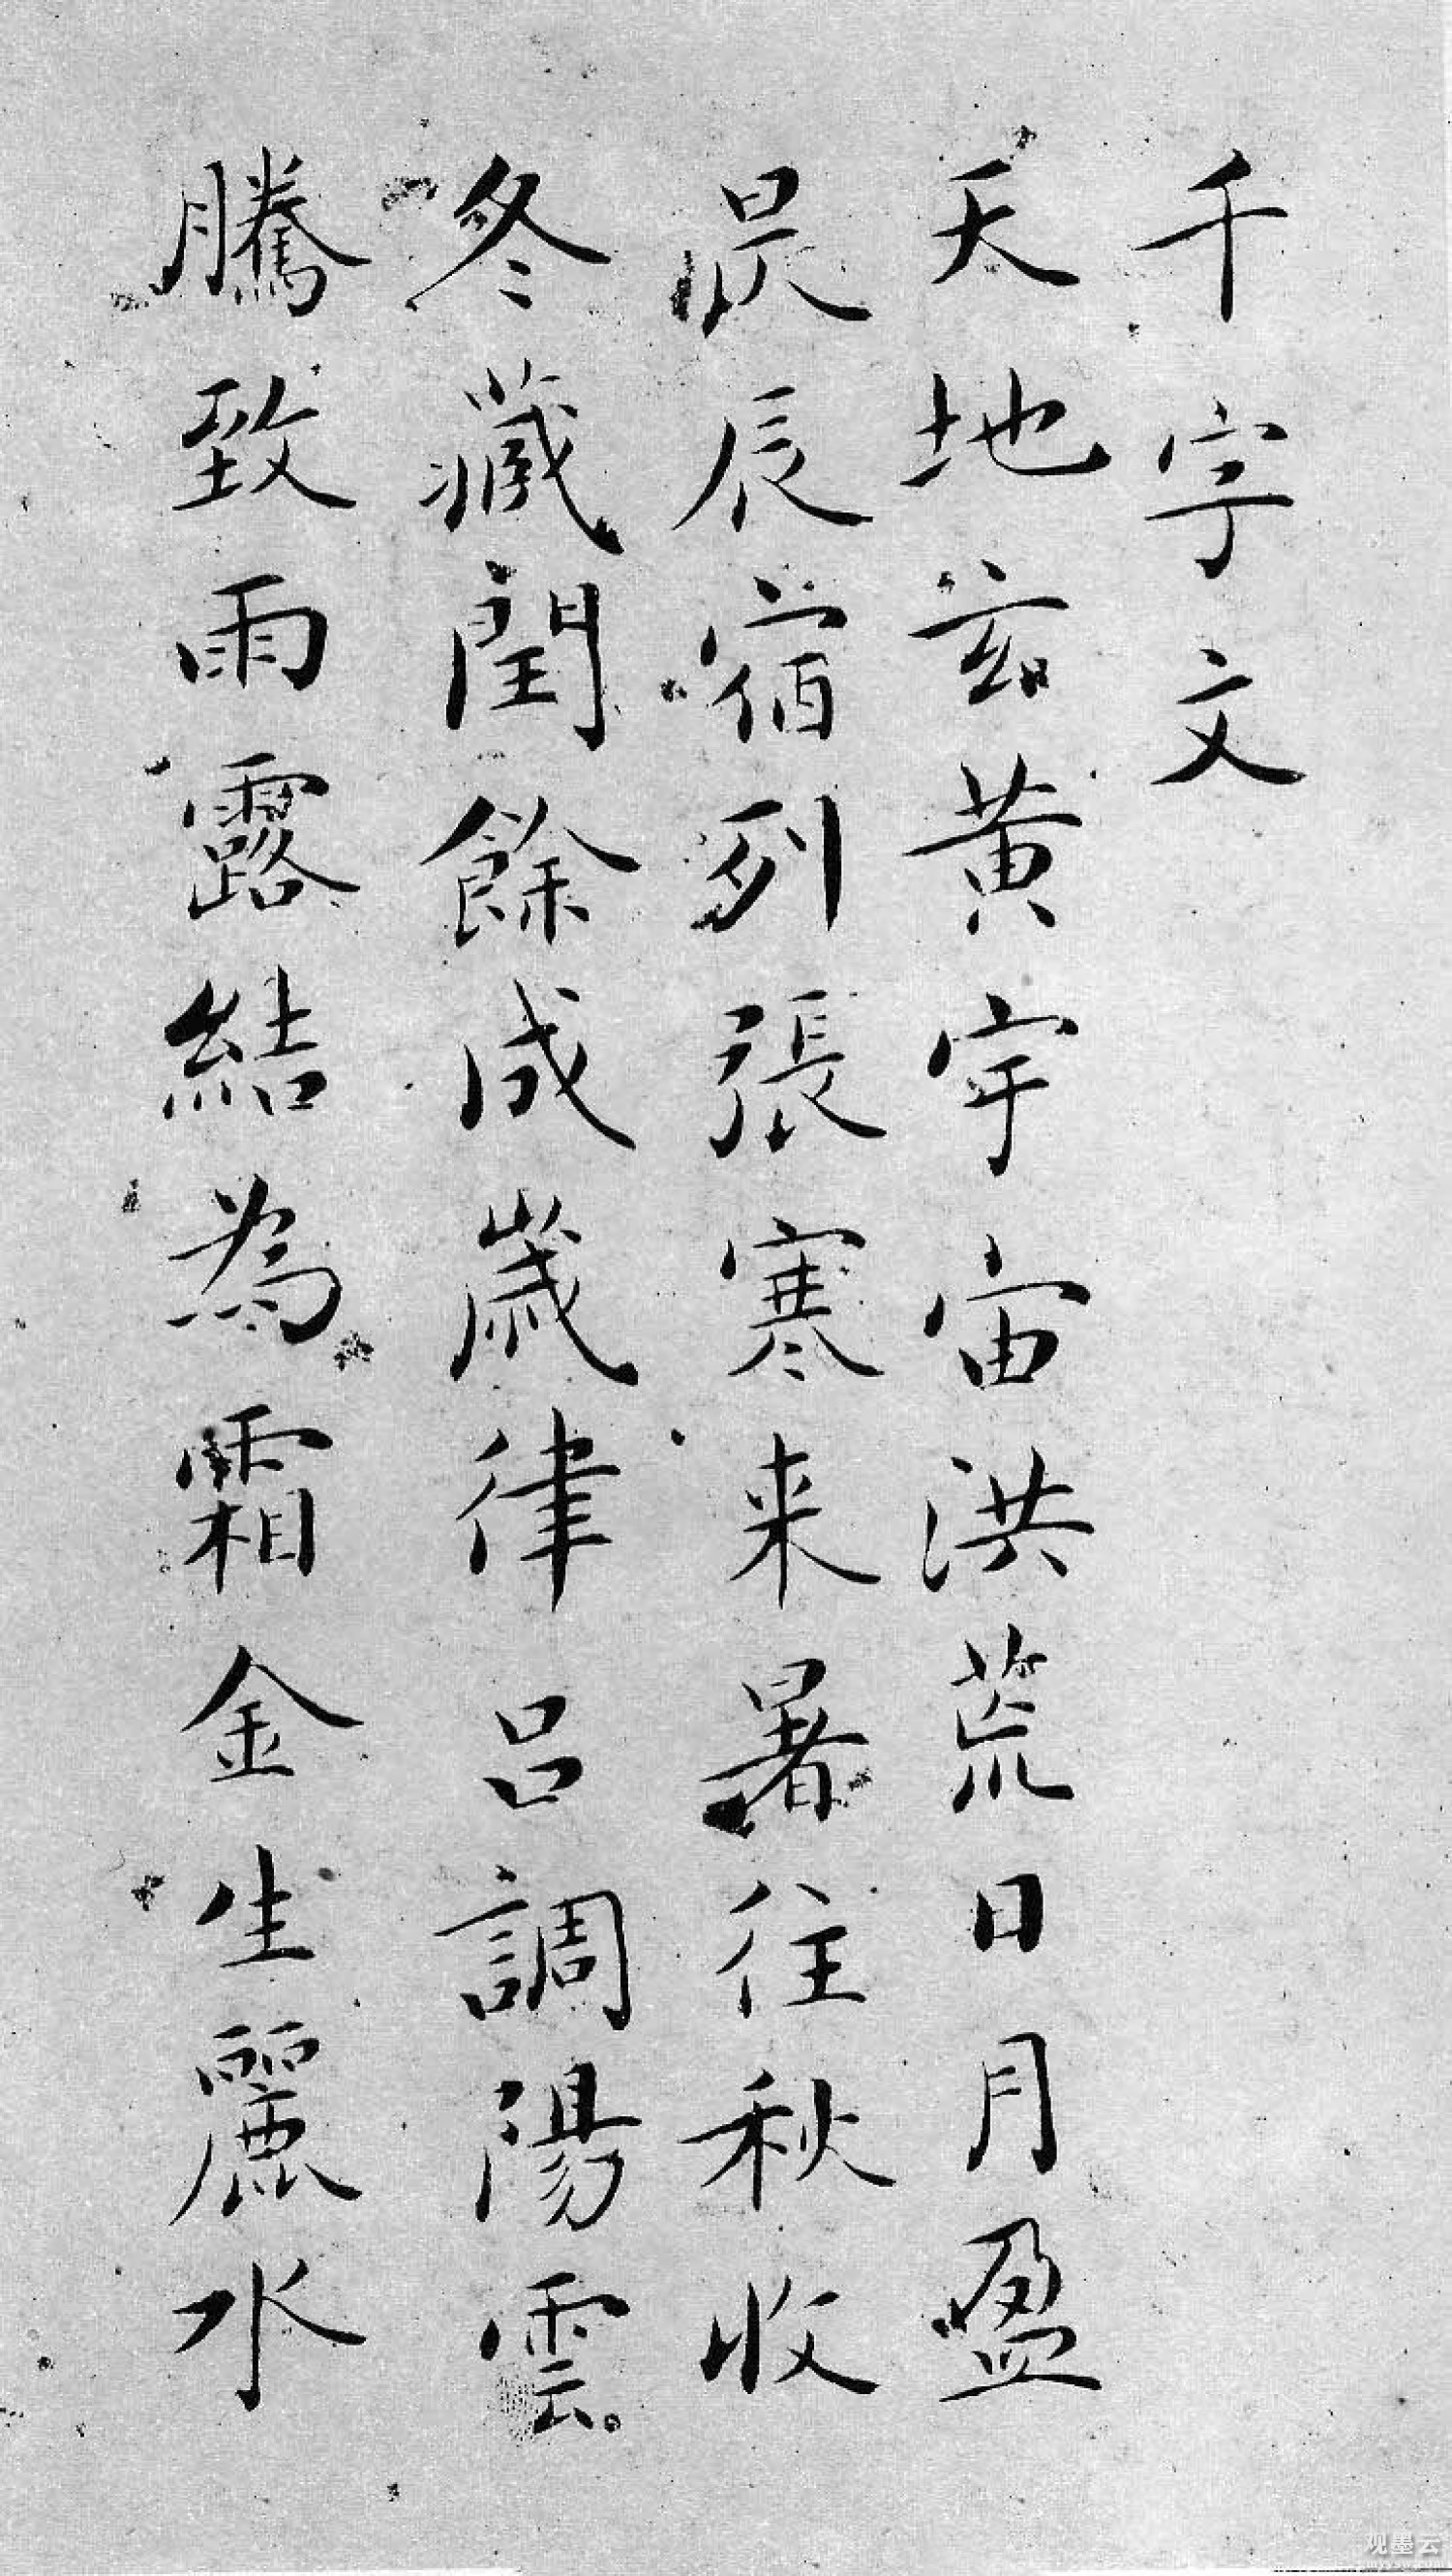 千字文
天地玄黃宇宙洪荒日月盈
昃辰宿列張寒来暑往秋收
冬藏閏餘成歲律呂調陽雲
騰致雨露結為霜金生麗水
观墨云